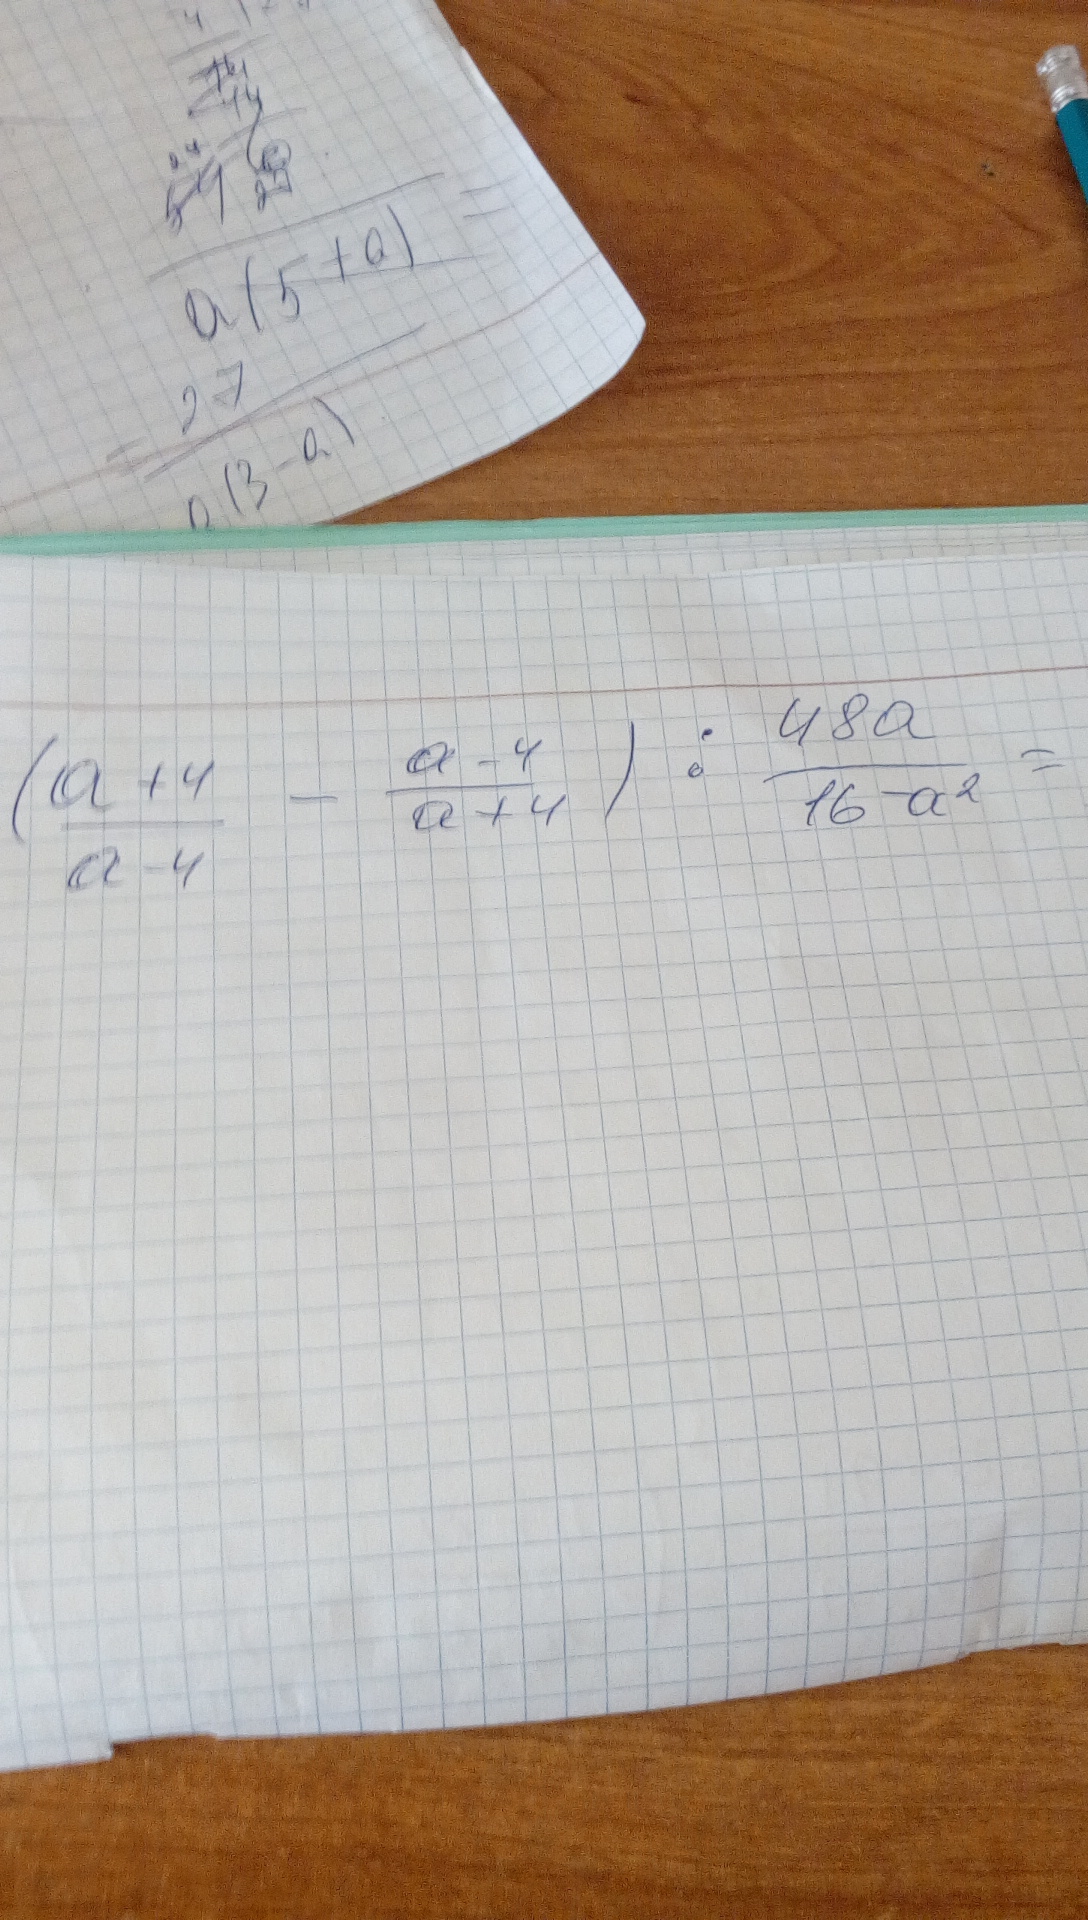 a(5+a) =
27
= a(3-a)
(a+4 / a-4 - a-4 / a+4) : 48a / 16-a² =